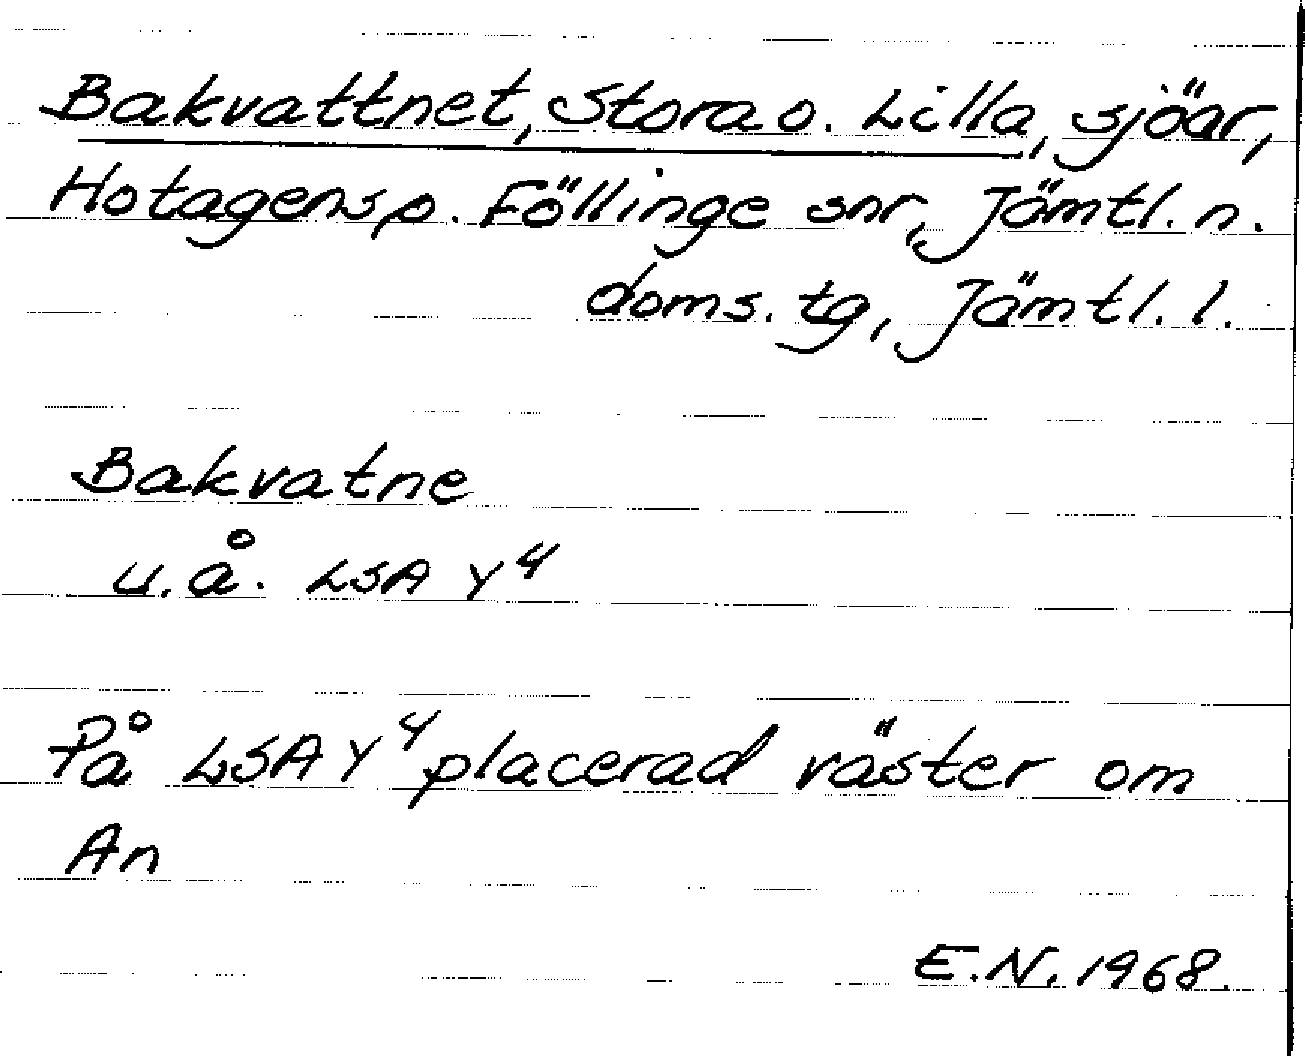 Bakvattnet, Stora o. Lilla, sjöar,
Hotagens o. Föllinge snr, Jämtl. n.
doms. tg, Jämtl. l.
Bakvatne
u.å. LSA Y4
På LSA Y4 placerad väster om
An
E.N. 1968.